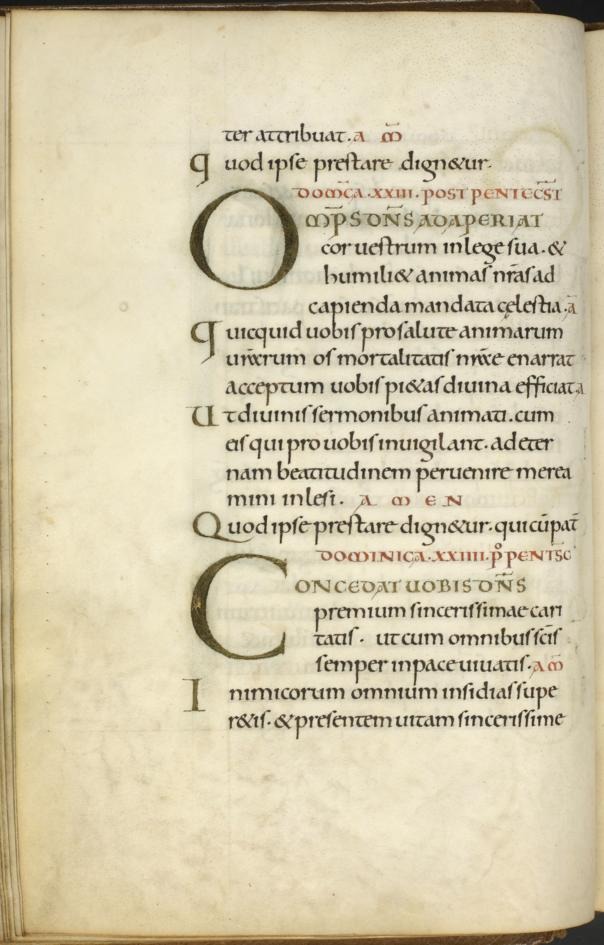 ter attribuat. a m̄
Quod ipse prestare dign&ur.
DOM̄CA. XXIII. POST PENTECST̄
OMP̄S DN̄S ADAPERIAT
cor uestrum in lege sua. &
humili& animas nr̄as ad
capienda mandata cęlestia. ā
Quicquid uobis pro salute animarum
urārum os mortalitatis nrāe enarrat
acceptum uobis pi&as diuina efficiat. a
Ut diuinis sermonibus animati. cum
eis qui pro uobis inuigilant. ad eter
nam beatitudinem peruenire merea
mini inlesi. A M E N
Quod ipse prestare dign&ur. qui cū pat̄
DOMINICA. XXIIII. P̊ PENTSC̄
CONCEDAT UOBIS DN̄S
premium sincerissimae cari
tatis. ut cum omnibus sc̄is
semper in pace uiuatis. A M̄
Inimicorum omnium insidias supe
r&is. & presentem uitam sincerissime